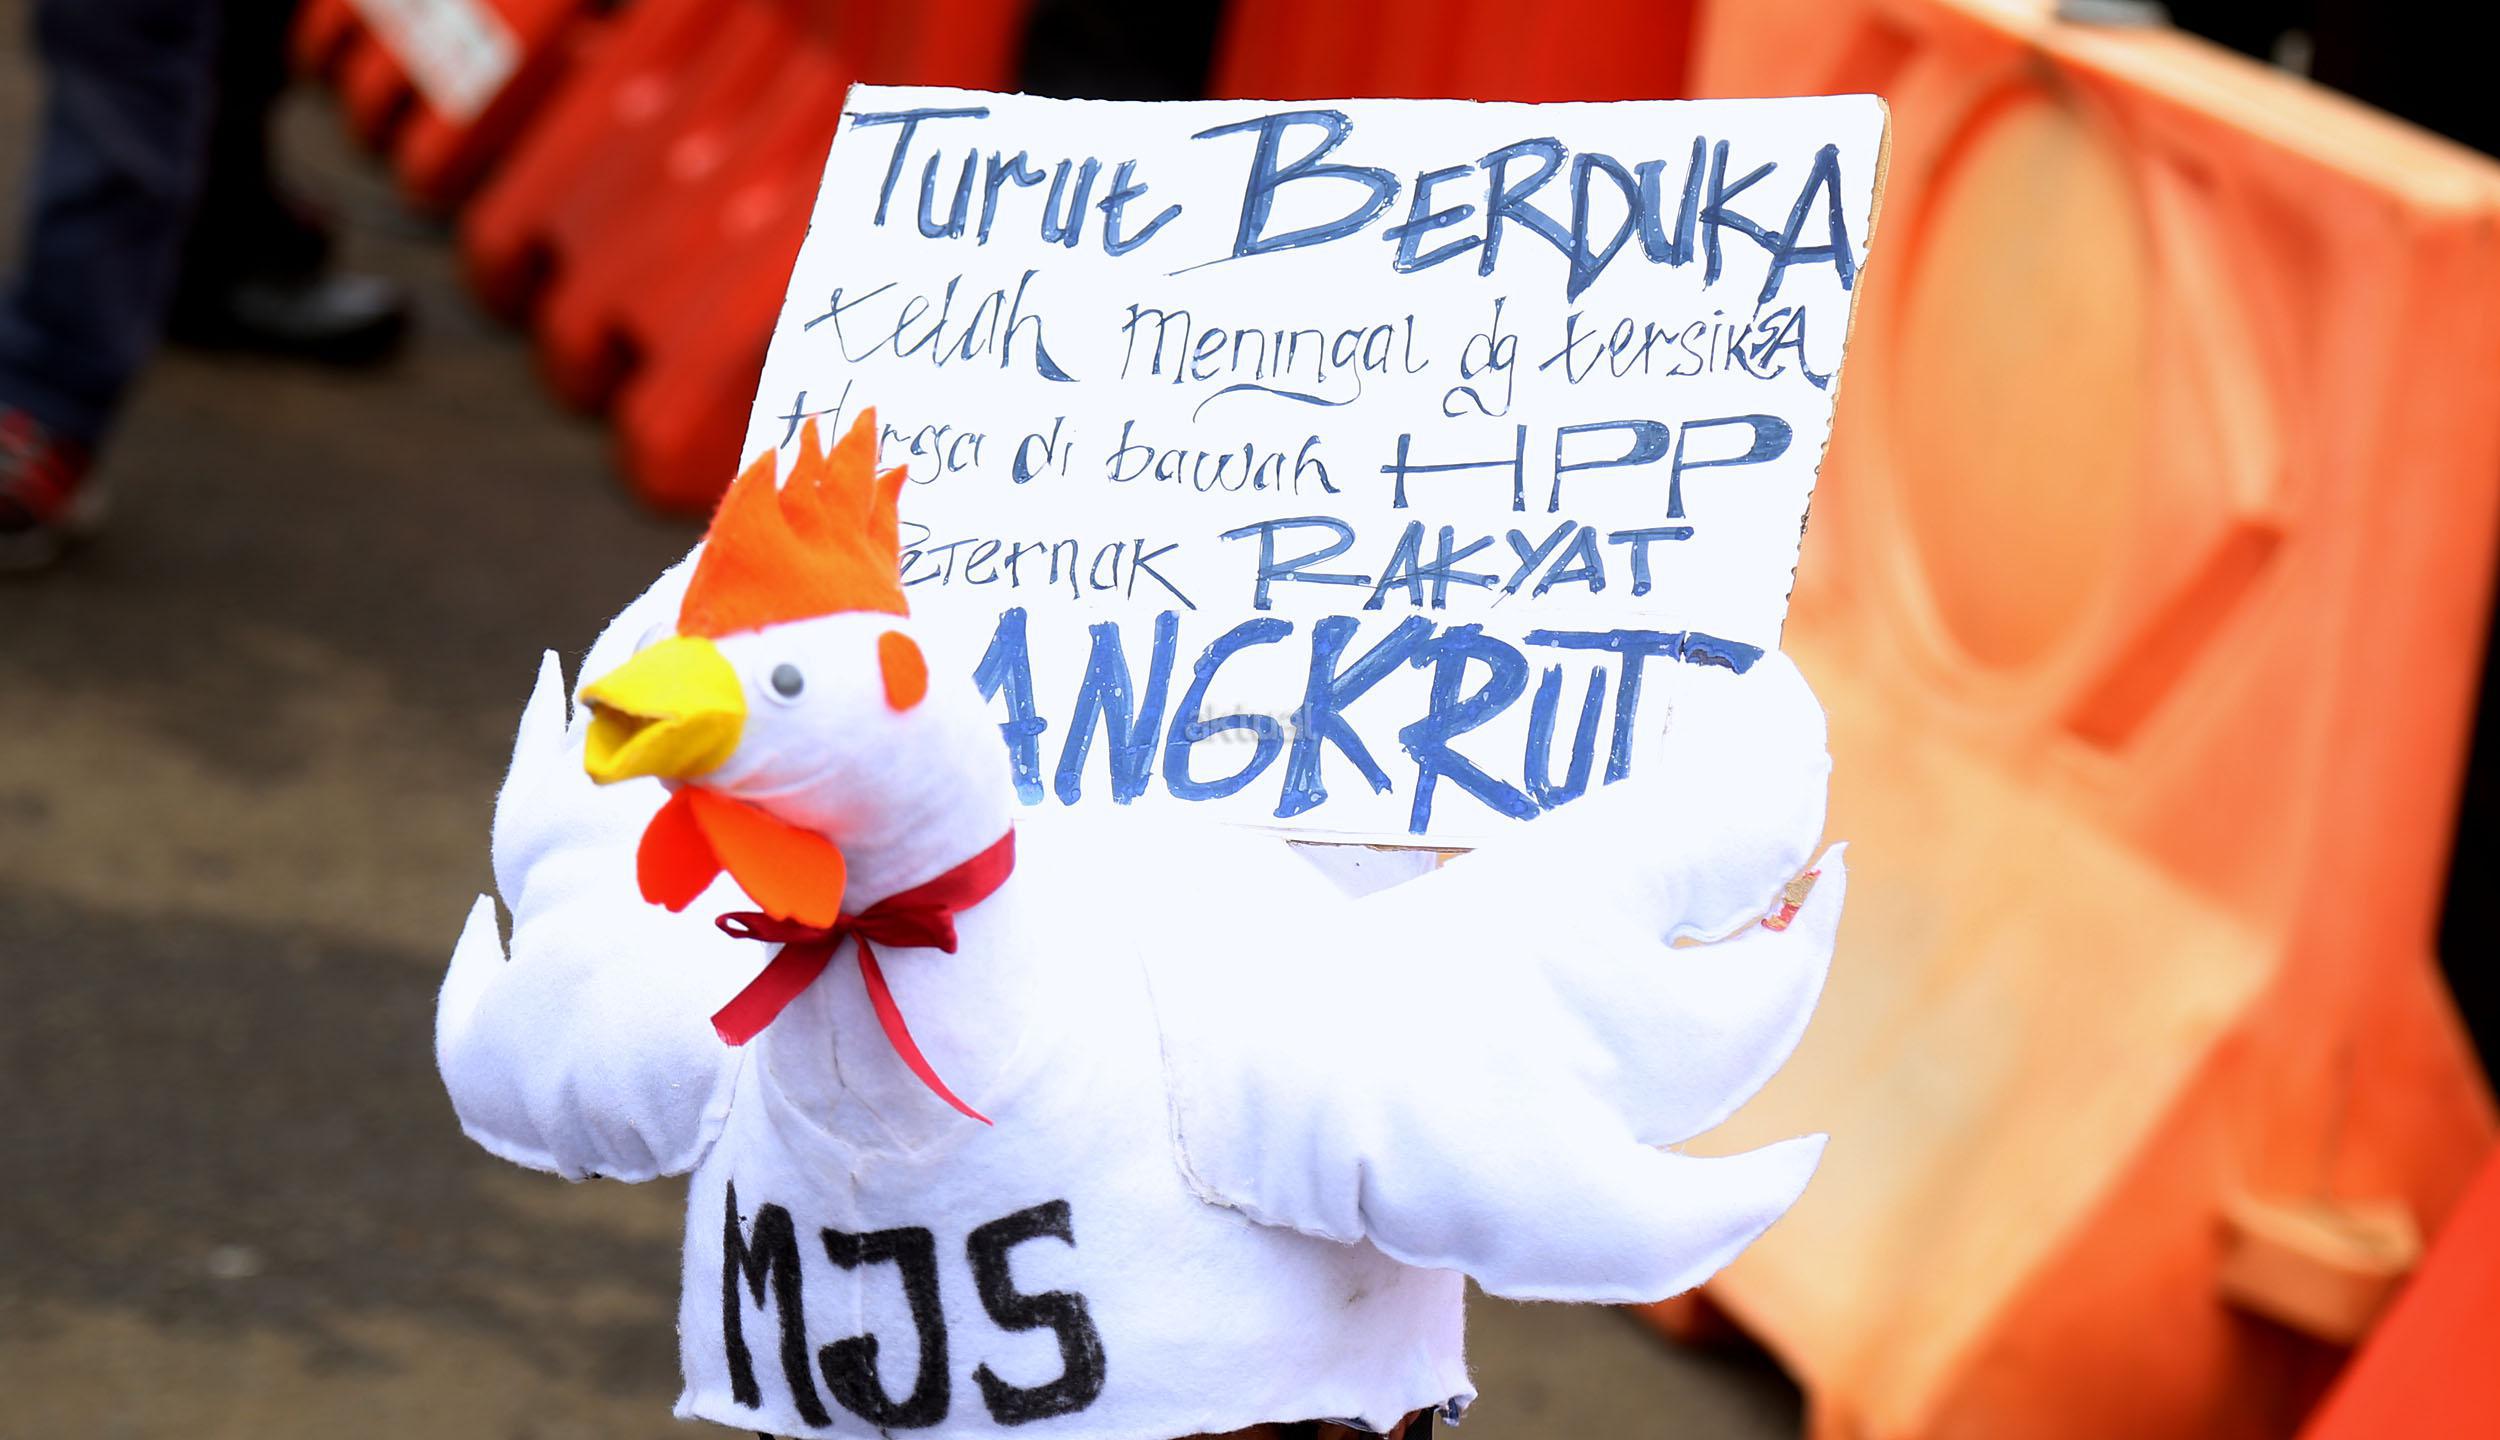 Turut BERDUKA
telah meningal dg tersiksa
Harga di bawah HPP
Peternak RAKYAT
BANGKRUT
aktual
MJS